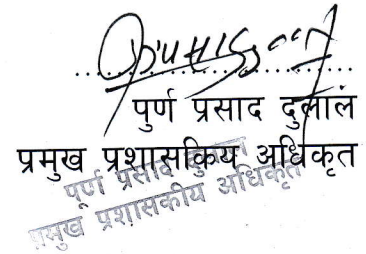 पुर्ण प्रसाद दुलाल
प्रमुख प्रशासकिय अधिकृत
पूर्ण प्रसाद दुलाल
प्रमुख प्रशासकीय अधिकृत